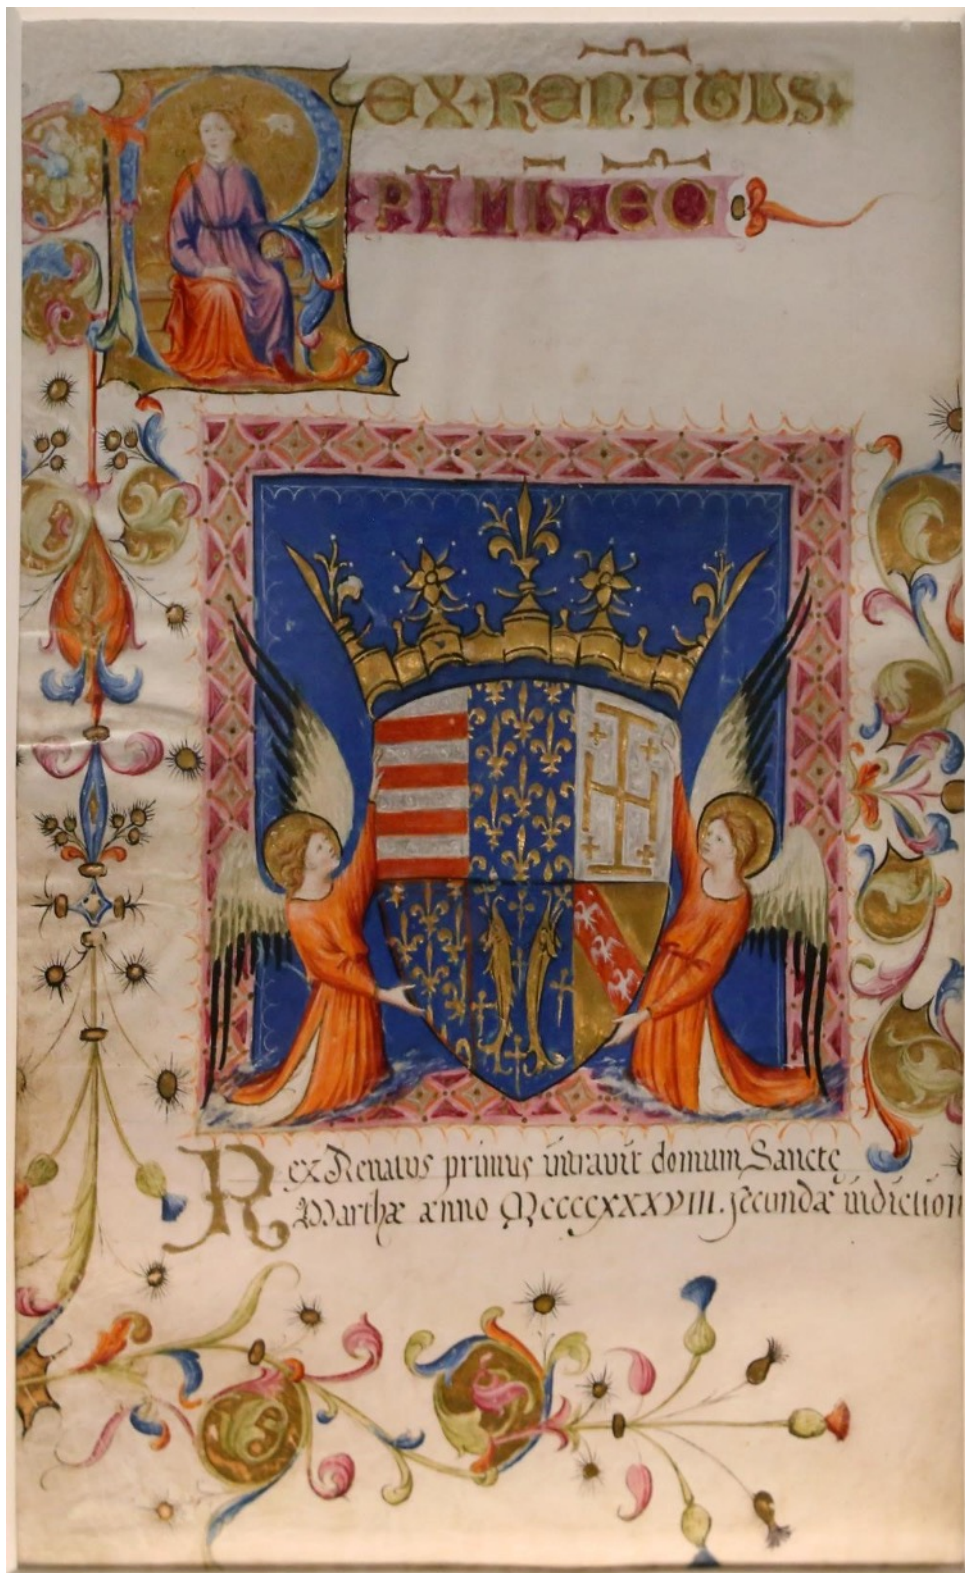 REX·RENATUS·
PRIMUS·EC
Rex Renatus primus intravit domum Sancte
Marthæ anno Mccccxxxviii. secundæ indiction